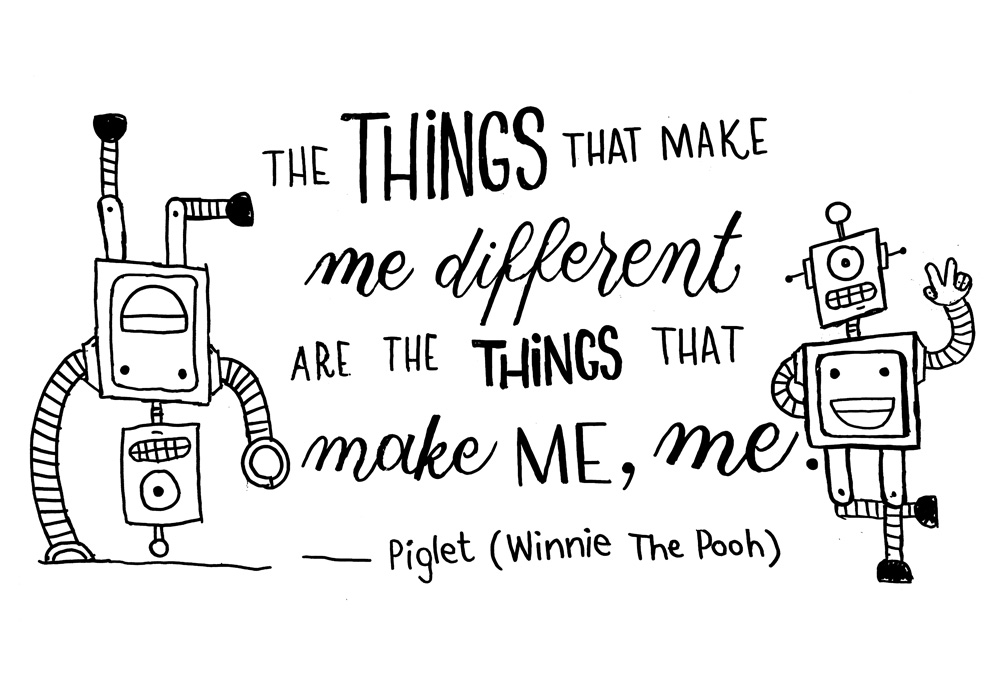 THE THiNGS THAT MAKE
me different
ARE THE THiNGS THAT
make ME, me.
— Piglet (Winnie The Pooh)